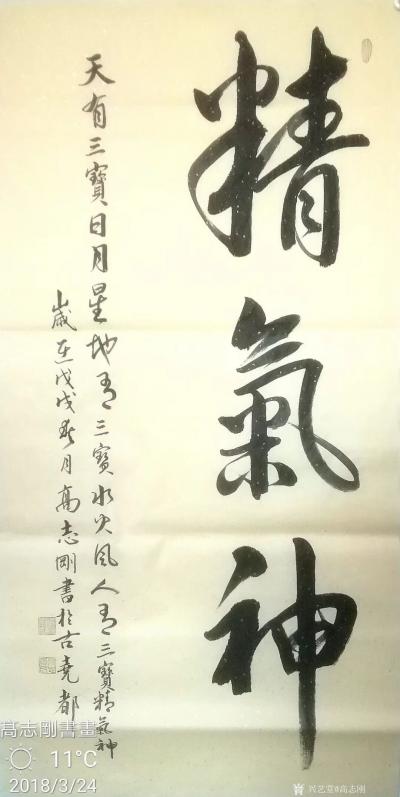 精氣神
天有三寶日月星地有三寶水火風人有三寶精氣神
歲在戊戌春月高志剛書於古堯都
高志剛書畫
11°C
2018/3/24
兴艺堂@高志刚